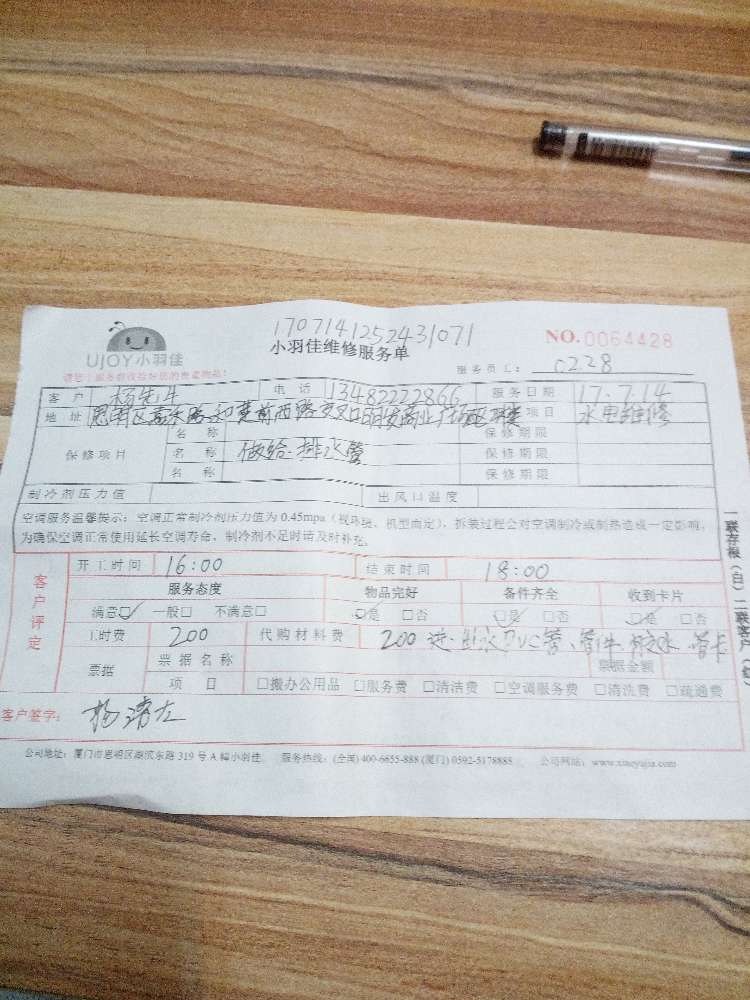 1707141252431071
UJOY小羽佳
小羽佳维修服务单
NO.0064428
请您:服务前收拾好您的贵重物品!
服务员工: 0228
客户 杨先生 电话 13482222866 服务日期 17.7.14
地址 思明区嘉禾路和莲前西路交叉口明发商业广场 项目 水电维修
名称 保修期限
保修项目 名称 做给.排水管 保修期限
名称 保修期限
制冷剂压力值 出风口温度
空调服务温馨提示:空调正常制冷剂压力值为 0.45mpa(视环境、机型而定),拆装过程会对空调制冷或制热造成一定影响,
为确保空调正常使用延长空调寿命,制冷剂不足时请及时补充。
客户评定
开工时间 16:00 结束时间 18:00
服务态度 物品完好 备件齐全 收到卡片
满意☑ 一般□ 不满意□ ☑是 □否 ☑是 □否 ☑是 □否
工时费 200 代购材料费 200 进.出水PVC管、管件.胶水.管卡
票据 票据名称 票据金额
项目 □搬办公用品 □服务费 □清洁费 □空调服务费 □清洗费 □疏通费
客户签字: 杨
一联存根(白)二联客户(红)
公司地址:厦门市思明区湖滨东路 319 号 A 幢小羽佳 服务热线:(全国) 400-6655-888 (厦门) 0592-5178888 公司网站:www.xiaoyujia.com